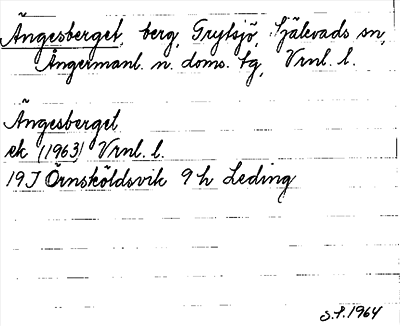 Ängesberget, berg, Grytsjö, Själevads sn,
Ångermanl. n. doms. tg, Vrnl. l.
Ängesberget
ek (1963) Vrnl. l.
19J Örnsköldsvik 9h Leding
S.F. 1964